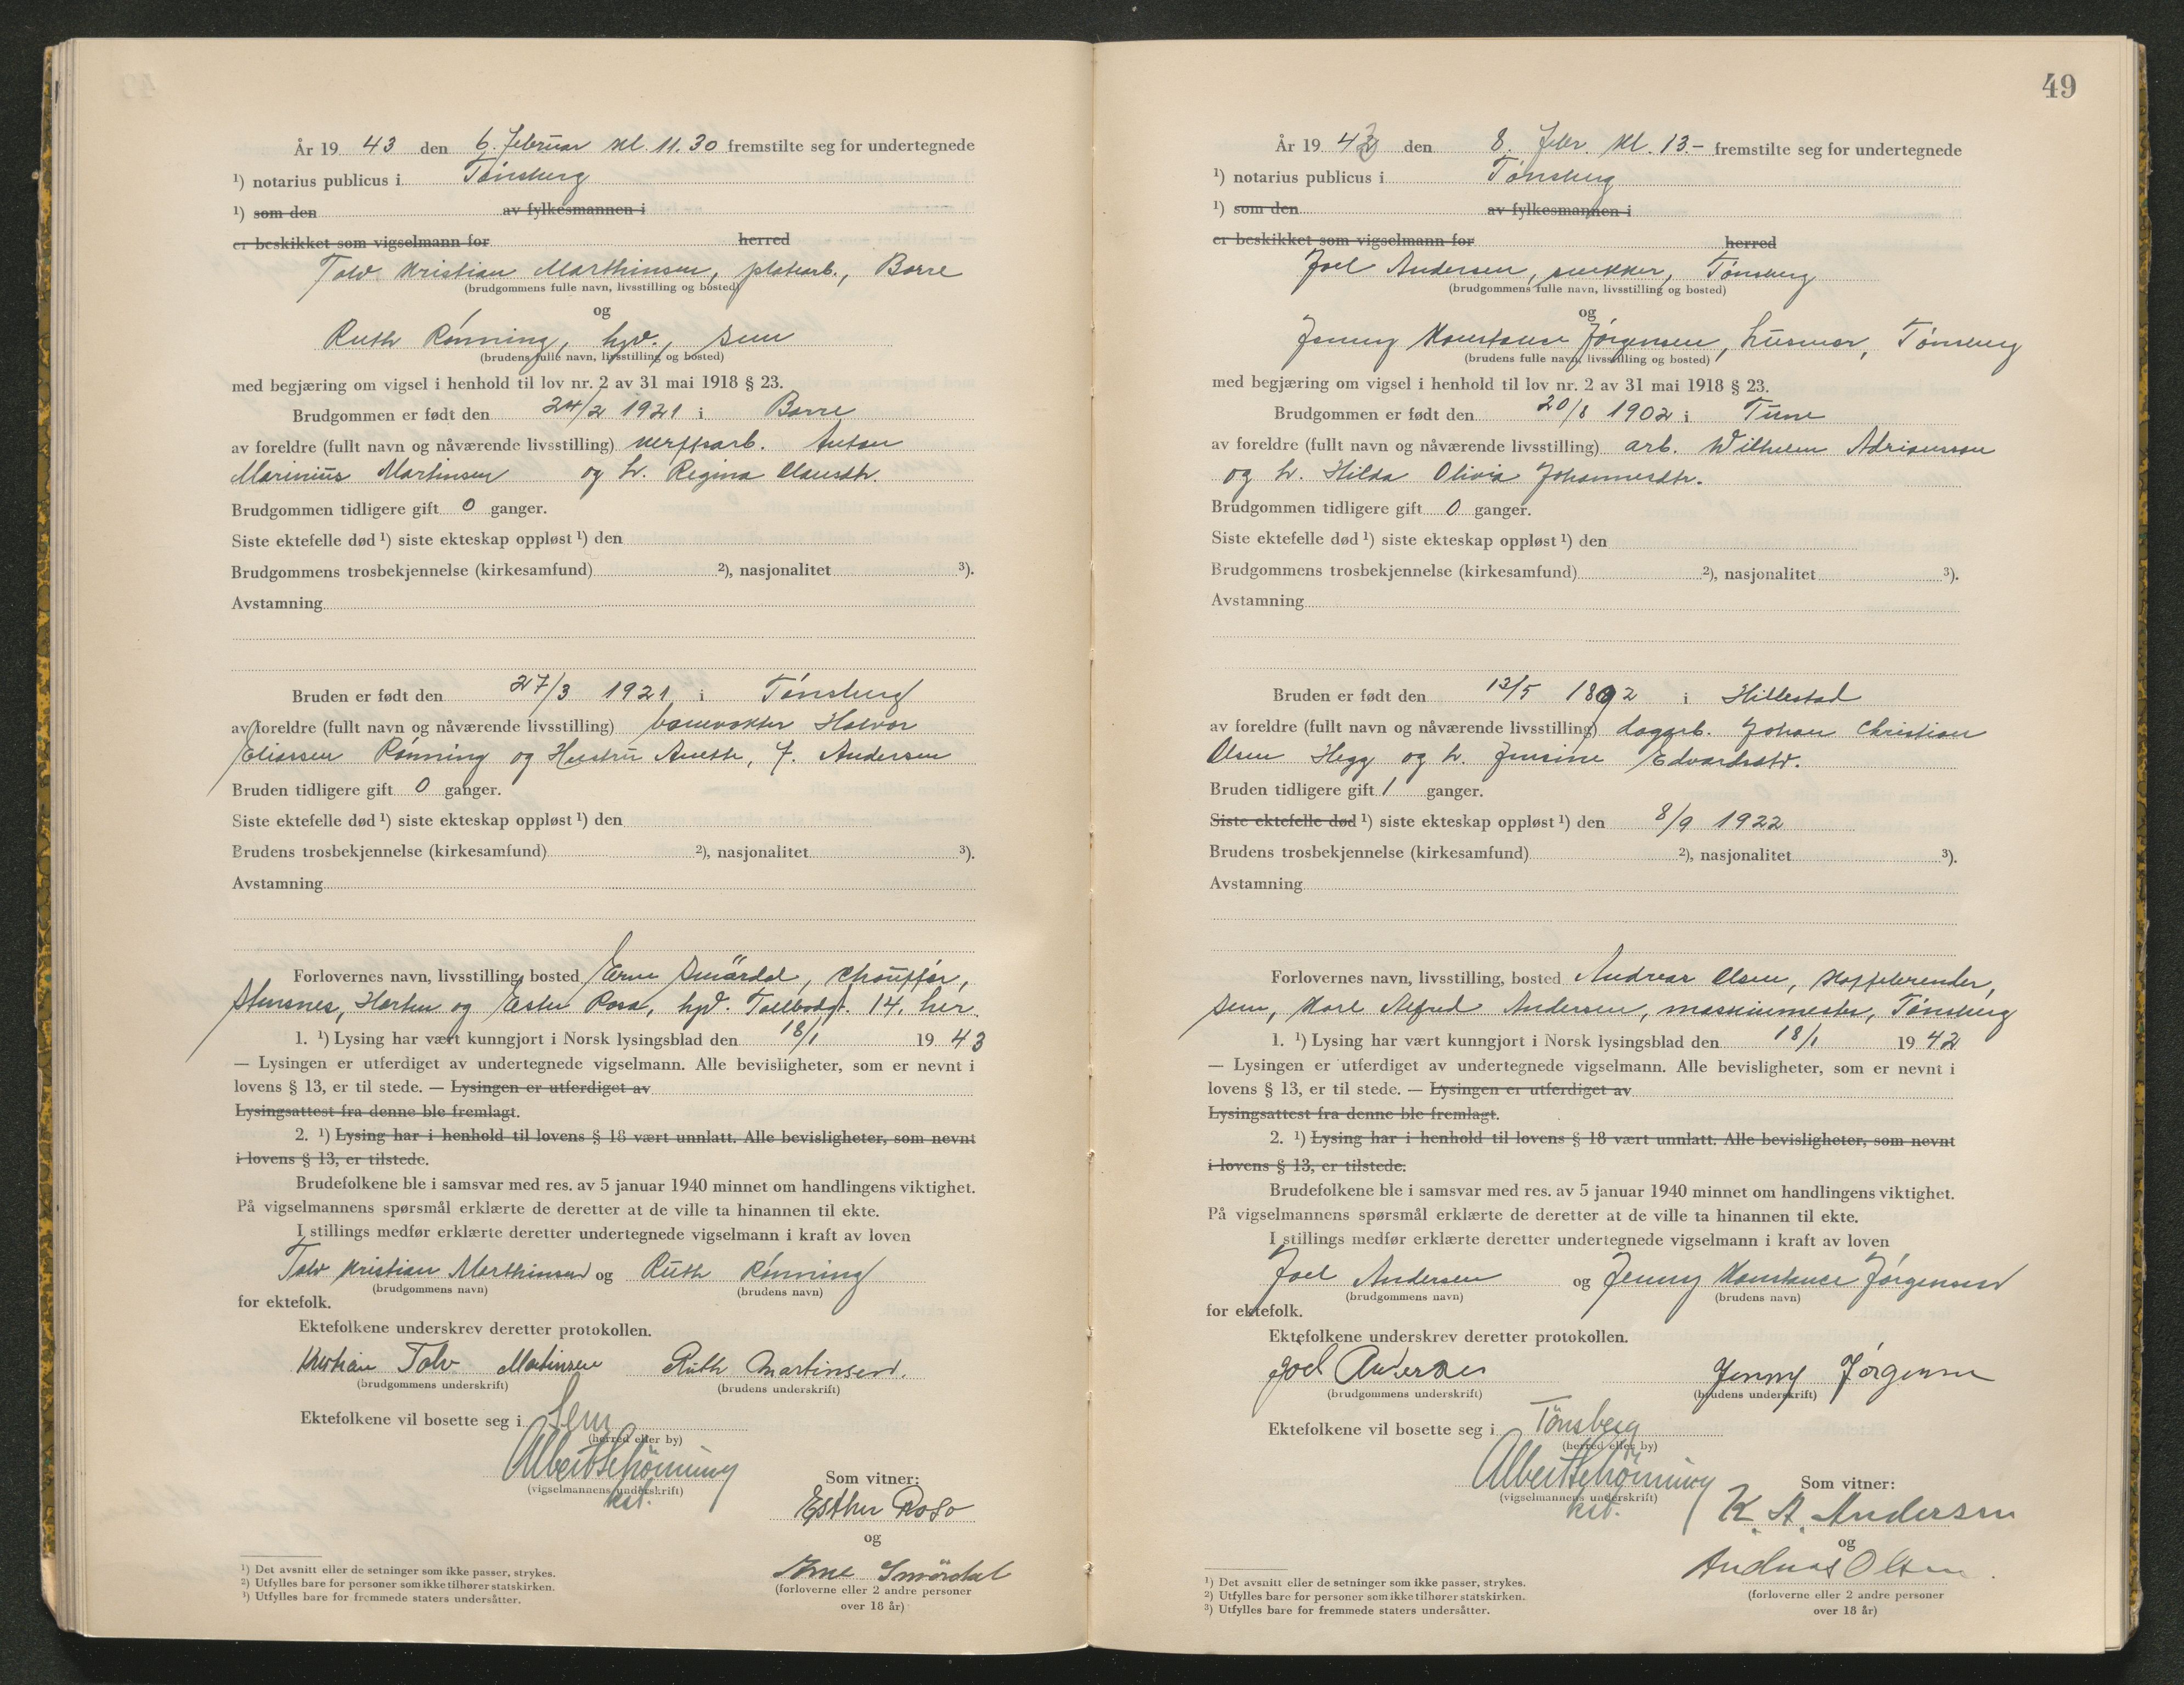 År 19 43 den 6. februar kl. 11.30 fremstilte seg for undertegnede
¹) notarius publicus i Tønsberg
¹) som den av fylkesmannen i
er beskikket som vigselmann for herred
Tolv Kristian Marthinsen, platearb., Borre
(brudgommens fulle navn, livsstilling og bosted)
og
Ruth Rønning, hjv., Sem
(brudens fulle navn, livsstilling og bosted)
med begjæring om vigsel i henhold til lov nr. 2 av 31 mai 1918 § 23.
Brudgommen er født den 24/2 1921 i Borre
av foreldre (fullt navn og nåværende livsstilling) verftsarb. Anton
Marinius Martinsen og h. Regina Olausdtr.
Brudgommen tidligere gift 0 ganger.
Siste ektefelle død ¹) siste ekteskap oppløst ¹) den
Brudgommens trosbekjennelse (kirkesamfund) ²), nasjonalitet ³).
Avstamning
Bruden er født den 27/3 1921 i Tønsberg
av foreldre (fullt navn og nåværende livsstilling) banevokter Halvor
Eliassen Rønning og Hustru Anette, f. Andersen
Bruden tidligere gift 0 ganger.
Siste ektefelle død ¹) siste ekteskap oppløst ¹) den
Brudens trosbekjennelse (kirkesamfund) ²), nasjonalitet ³).
Avstamning
Forlovernes navn, livsstilling, bosted Erne Smördal, chauffør,
Horten og Ester Rosa, hjv. Tollbodgt. 14, her.
1. ¹) Lysing har vært kunngjort i Norsk lysingsblad den 18/1 19 43
— Lysingen er utferdiget av undertegnede vigselmann. Alle bevisligheter, som er nevnt i
lovens § 13, er til stede. — Lysingen er utferdiget av
Lysingsattest fra denne ble fremlagt.
2. ¹) Lysing har i henhold til lovens § 18 vært unnlatt. Alle bevisligheter, som nevnt
i lovens § 13, er tilstede.
Brudefolkene ble i samsvar med res. av 5 januar 1940 minnet om handlingens viktighet.
På vigselmannens spørsmål erklærte de deretter at de ville ta hinannen til ekte.
I stillings medfør erklærte deretter undertegnede vigselmann i kraft av loven
Tolv Kristian Marthinsen og Ruth Rønning
(brudgommens navn) (brudens navn)
for ektefolk.
Ektefolkene underskrev deretter protokollen.
Kristian Tolv Martinsen Ruth Martinsen.
(brudgommens underskrift) (brudens underskrift)
Ektefolkene vil bosette seg i Sem
(herred eller by)
Albert Schönning
(vigselmannens underskrift)
kst.
Som vitner:
Esther Roso
og
Erne Smördal
(forloverne eller 2 andre personer
over 18 år)
¹) Det avsnitt eller de setninger som ikke passer, strykes.
²) Utfylles bare for personer som ikke tilhører statskirken.
³) Utfylles bare for fremmede staters undersåtter.
49
År 19 43 den 8. febr. kl. 13.- fremstilte seg for undertegnede
¹) notarius publicus i Tønsberg
¹) som den av fylkesmannen i
er beskikket som vigselmann for herred
Joel Andersen, snekker, Tønsberg
(brudgommens fulle navn, livsstilling og bosted)
og
Jenny Konstance Jørgensen, husmor, Tønsberg
(brudens fulle navn, livsstilling og bosted)
med begjæring om vigsel i henhold til lov nr. 2 av 31 mai 1918 § 23.
Brudgommen er født den 20/8 1902 i Tune
av foreldre (fullt navn og nåværende livsstilling) arb. Wilhelm Adriansson
og h. Hilda Olivia Johannesdtr.
Brudgommen tidligere gift 0 ganger.
Siste ektefelle død ¹) siste ekteskap oppløst ¹) den
Brudgommens trosbekjennelse (kirkesamfund) ²), nasjonalitet ³).
Avstamning
Bruden er født den 13/5 1892 i Hillestad
av foreldre (fullt navn og nåværende livsstilling) dagarb. Johan Christian
Olsen Hegg og h. Jensine Edvardsdtr.
Bruden tidligere gift 1 ganger.
Siste ektefelle død ¹) siste ekteskap oppløst ¹) den 8/9 1922
Brudens trosbekjennelse (kirkesamfund) ²), nasjonalitet ³).
Avstamning
Forlovernes navn, livsstilling, bosted Andreas Olsen,
Sem, Karl Alfred Andersen, maskinmester, Tønsberg
1. ¹) Lysing har vært kunngjort i Norsk lysingsblad den 18/1 19 42
— Lysingen er utferdiget av undertegnede vigselmann. Alle bevisligheter, som er nevnt i
lovens § 13, er til stede. — Lysingen er utferdiget av
Lysingsattest fra denne ble fremlagt.
2. ¹) Lysing har i henhold til lovens § 18 vært unnlatt. Alle bevisligheter, som nevnt
i lovens § 13, er tilstede.
Brudefolkene ble i samsvar med res. av 5 januar 1940 minnet om handlingens viktighet.
På vigselmannens spørsmål erklærte de deretter at de ville ta hinannen til ekte.
I stillings medfør erklærte deretter undertegnede vigselmann i kraft av loven
Joel Andersen og Jenny Konstance Jørgensen
(brudgommens navn) (brudens navn)
for ektefolk.
Ektefolkene underskrev deretter protokollen.
Joel Andersen Jenny Jørgensen
(brudgommens underskrift) (brudens underskrift)
Ektefolkene vil bosette seg i Tönsberg
(herred eller by)
Albert Schönning
(vigselmannens underskrift)
kst.
Som vitner:
K. A. Andersen
og
Andreas Olsen.
(forloverne eller 2 andre personer
over 18 år)
¹) Det avsnitt eller de setninger som ikke passer, strykes.
²) Utfylles bare for personer som ikke tilhører statskirken.
³) Utfylles bare for fremmede staters undersåtter.